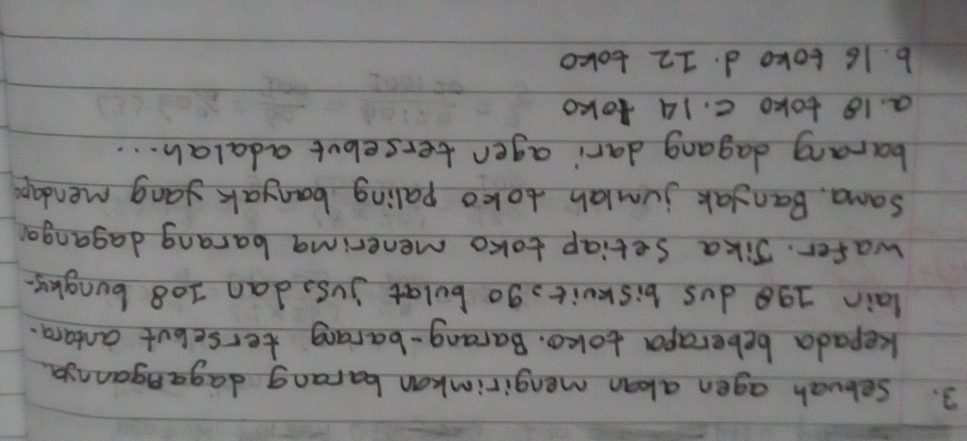 3. Sebuah agen akan mengirimkan barang dagangannya
kepada beberapa toko. Barang-barang tersebut antara
lain 198 dus biskuit, 90 bulat jus, dan 108 bungkus
wafer. Jika setiap toko menerima barang dagangan
sama. Banyak jumlah toko paling banyak yang mendapa
barang dagang dari agen tersebut adalah....
a. 18 toko c. 14 toko
b. 16 toko d. 12 toko